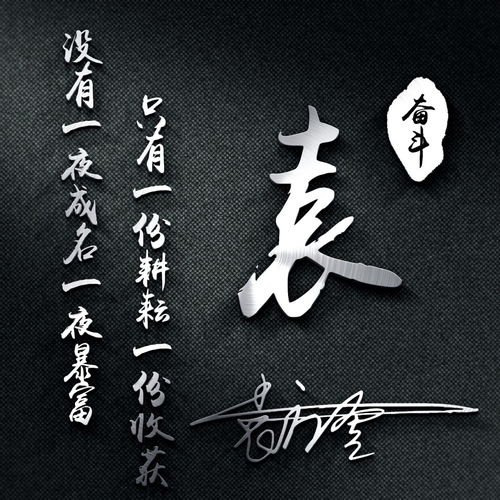 没有一夜成名一夜暴富
只有一份耕耘一份收获
袁
奋斗